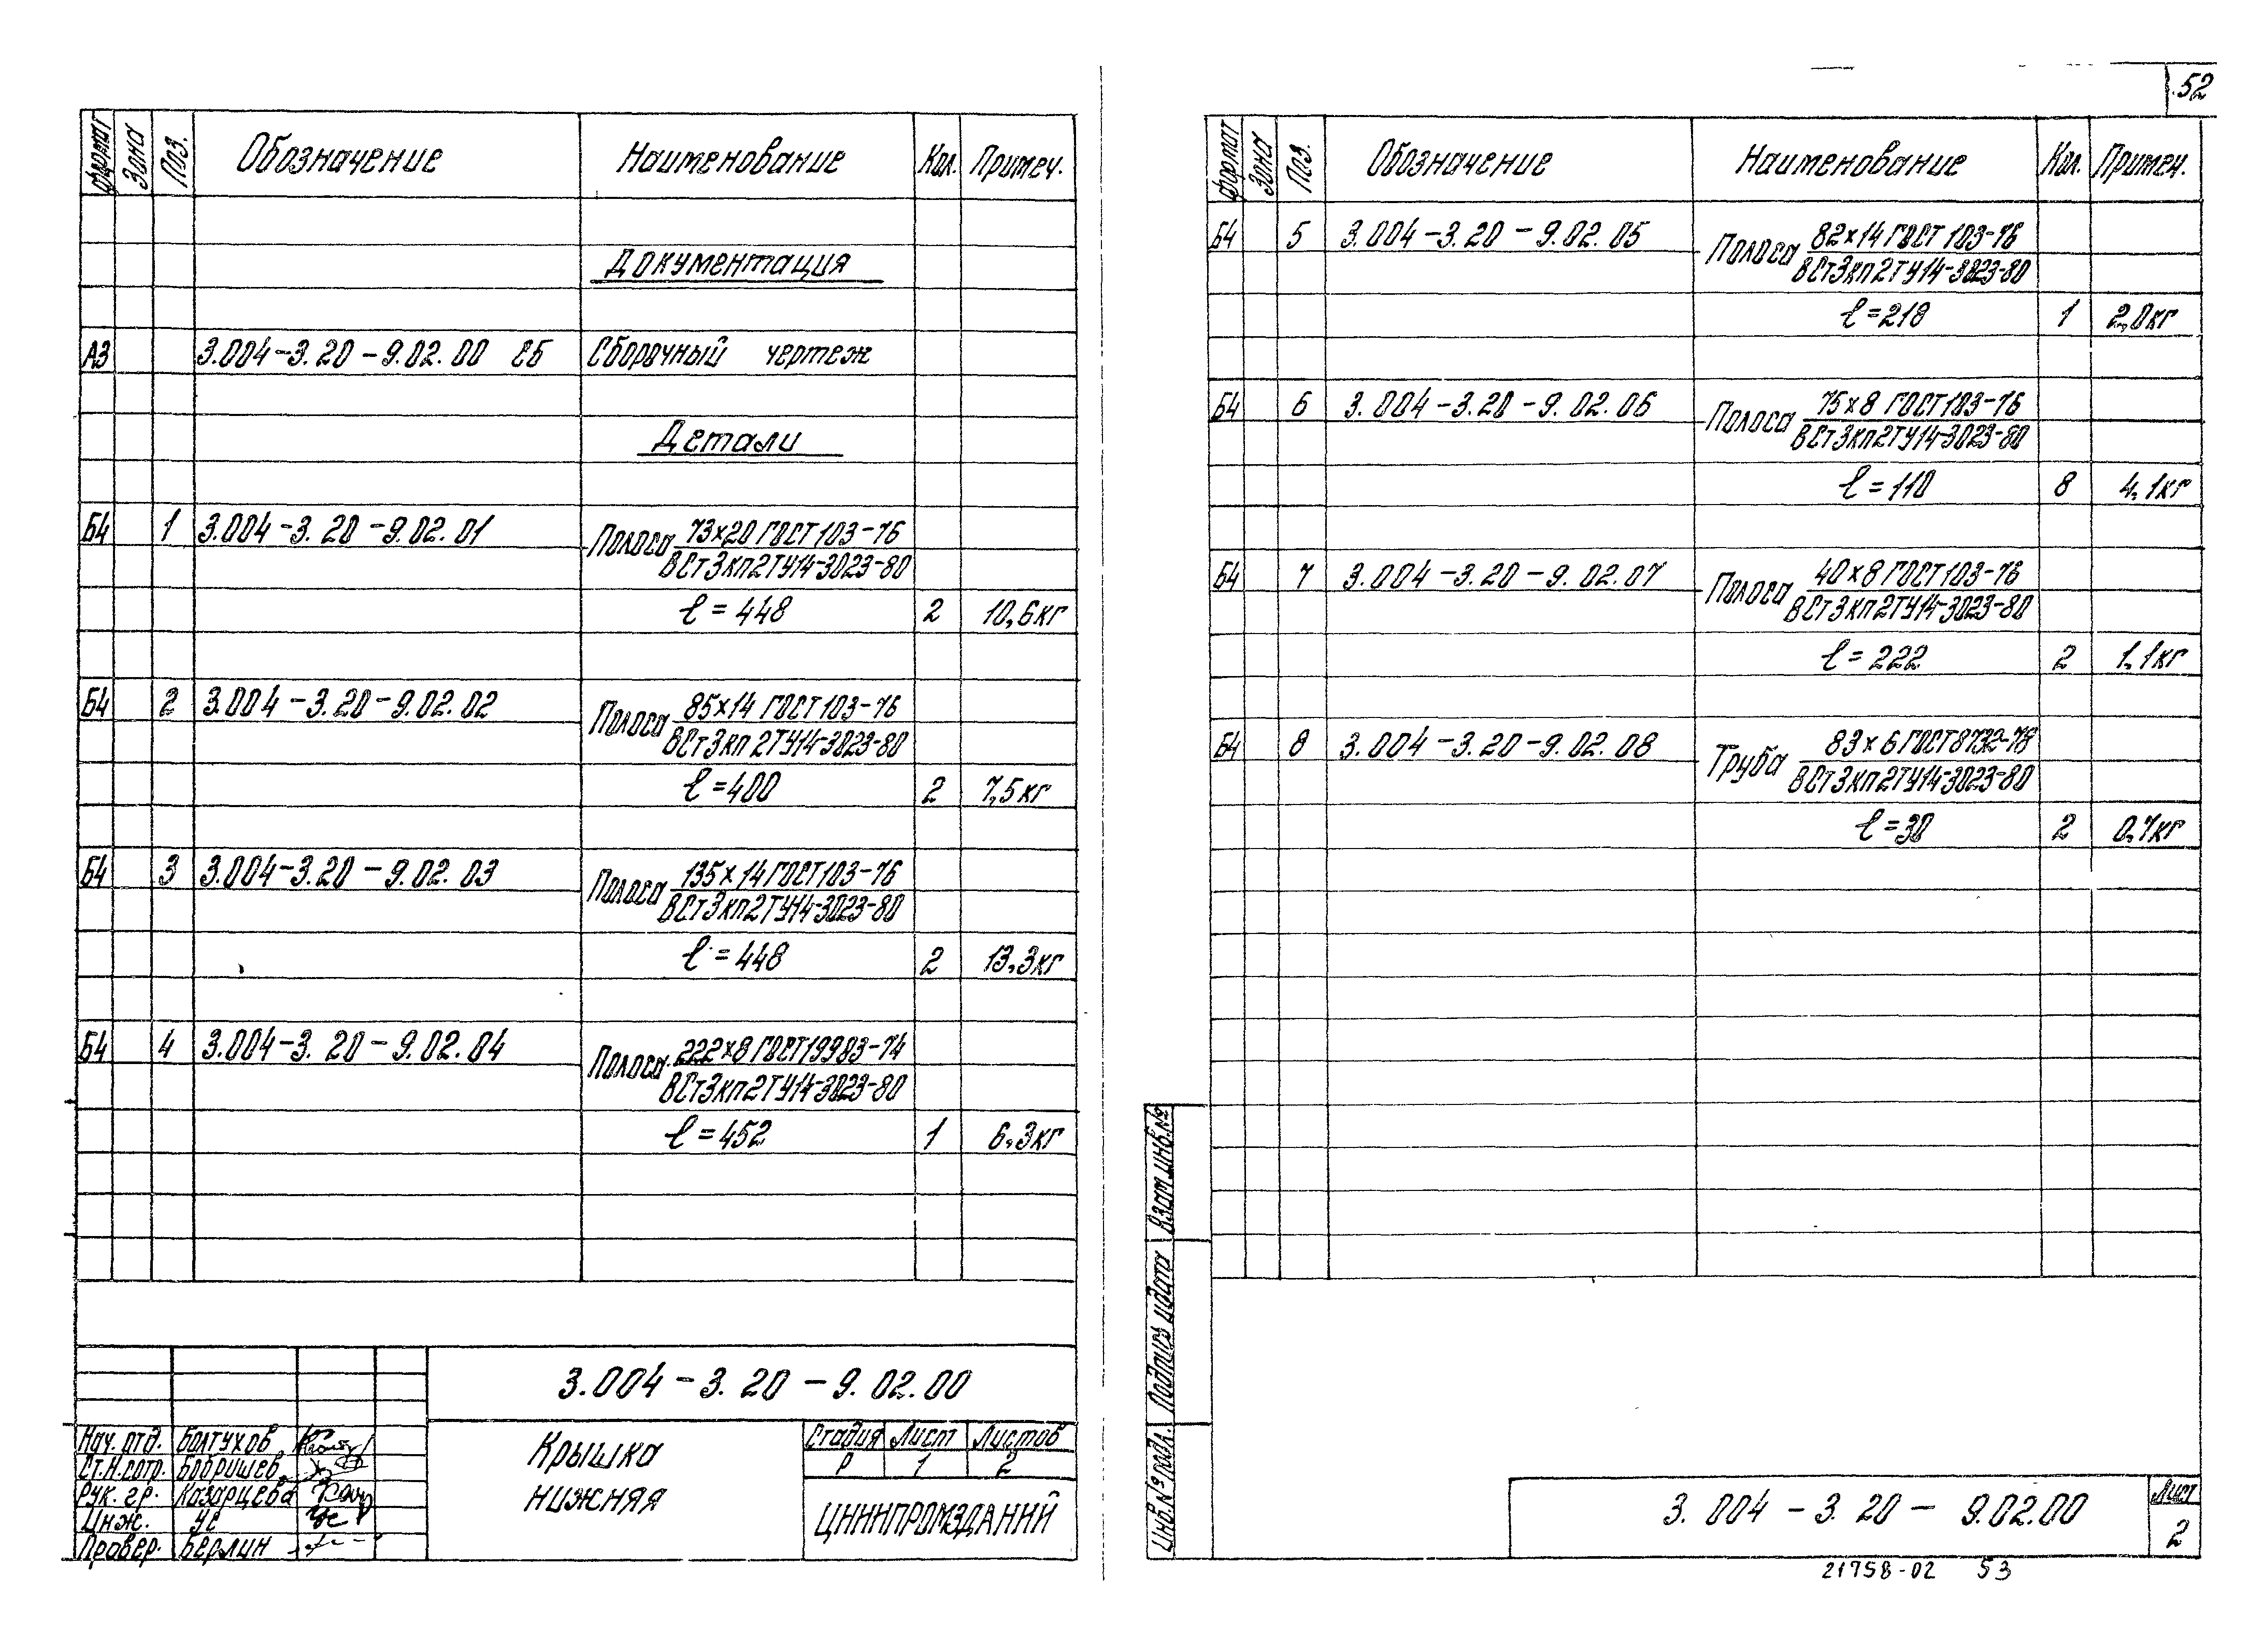 52
Формат Зона Поз. Обозначение Наименование Кол. Примеч.
Документация
А3 3.004-3.20-9.02.00 СБ Сборочный чертеж
Детали
Б4 1 3.004-3.20-9.02.01 Полоса 73х20 ГОСТ 103-76
ВСт3кп2ТУ14-3023-80
ℓ=448 2 10,6кг
Б4 2 3.004-3.20-9.02.02 Полоса 85х14 ГОСТ 103-76
ВСт3кп2ТУ14-3023-80
ℓ=400 2 7,5кг
Б4 3 3.004-3.20-9.02.03 Полоса 135х14 ГОСТ 103-76
ВСт3кп2ТУ14-3023-80
ℓ=448 2 13,3кг
Б4 4 3.004-3.20-9.02.04 Полоса 222х8 ГОСТ 19903-74
ВСт3кп2ТУ14-3023-80
ℓ=452 1 6,3кг
3.004-3.20-9.02.00
Крышка
нижняя
Стадия Лист Листов
Р 1 2
ЦНИИПРОМЗДАНИЙ
Нач. отд. Болтухов
Ст.н.сотр. Бобришев
Рук. гр. Казарцева
Инж. Ус
Провер. Берлин
Формат Зона Поз. Обозначение Наименование Кол. Примеч.
Б4 5 3.004-3.20-9.02.05 Полоса 82х14 ГОСТ 103-76
ВСт3кп2ТУ14-3023-80
ℓ=218 1 2,0кг
Б4 6 3.004-3.20-9.02.06 Полоса 75х8 ГОСТ 103-76
ВСт3кп2ТУ14-3023-80
ℓ=110 8 4,1кг
Б4 7 3.004-3.20-9.02.07 Полоса 40х8 ГОСТ 103-76
ВСт3кп2ТУ14-3023-80
ℓ=222 2 1,1кг
Б4 8 3.004-3.20-9.02.08 Труба 83х6 ГОСТ 8732-78
ВСт3кп2ТУ14-3023-80
ℓ=30 2 0,7кг
Взам.инв.№
Подпись и дата
Инв.№ подл.
3.004-3.20-9.02.00
Лист
2
21758-02 53